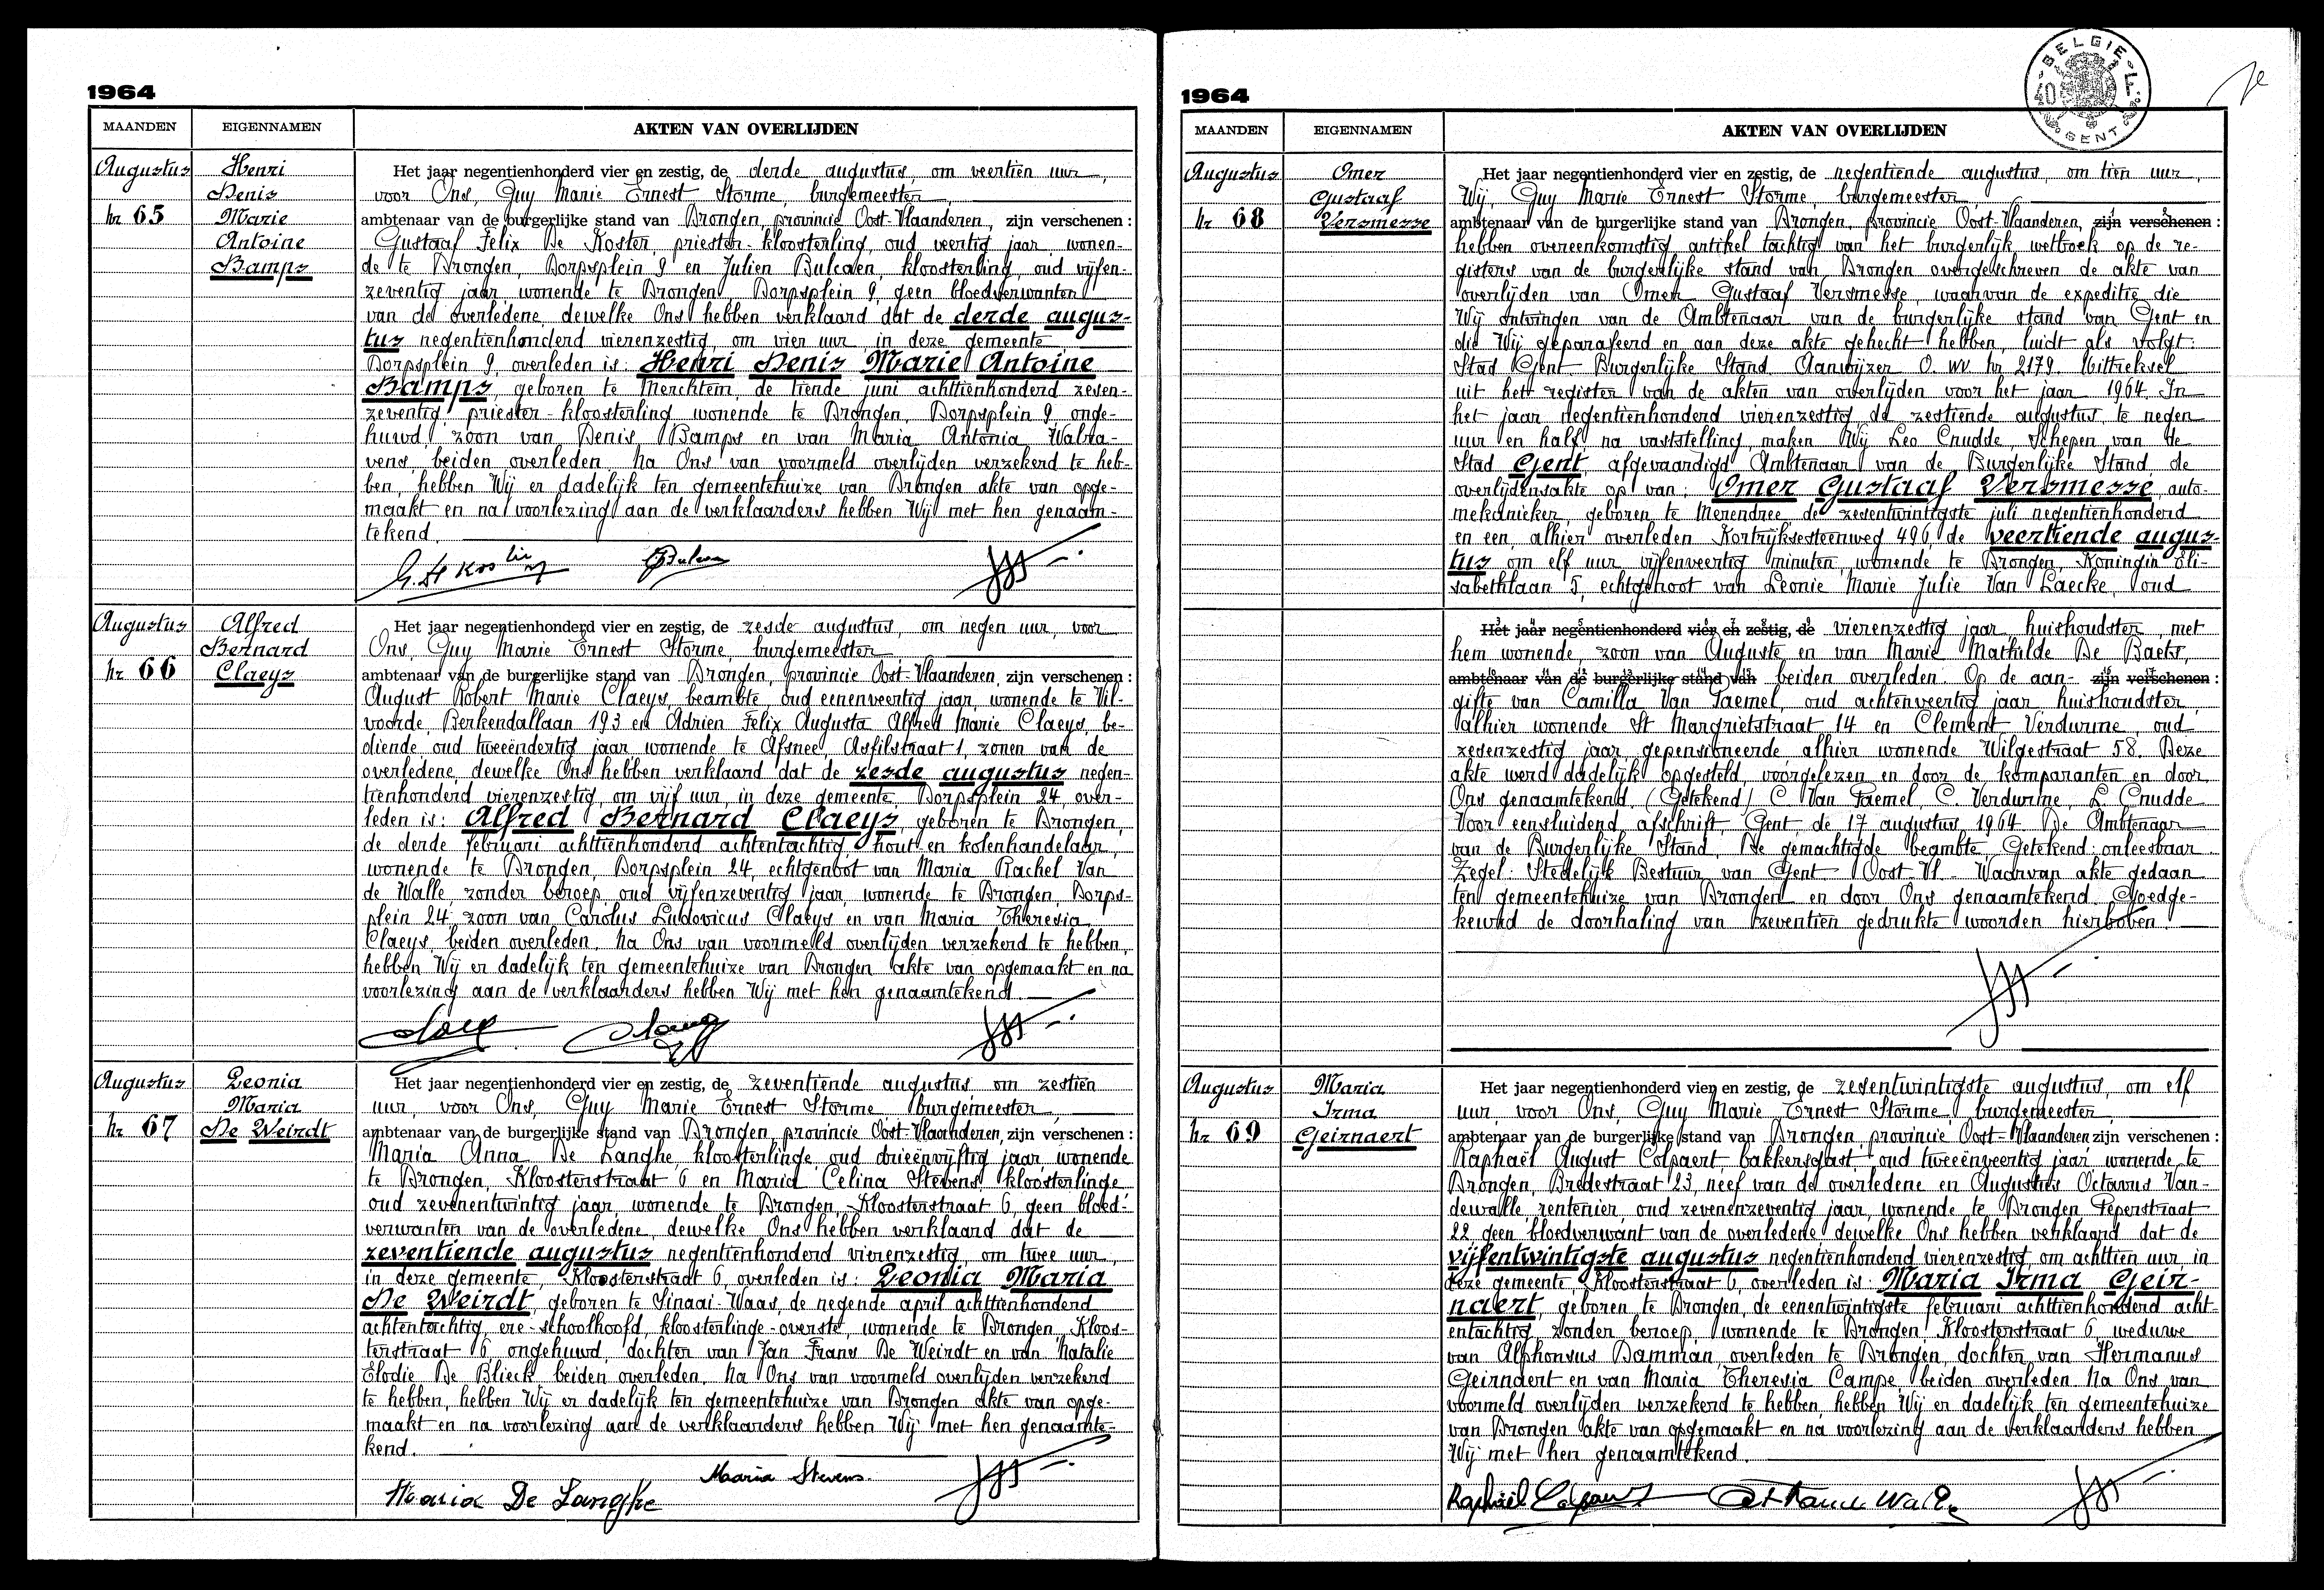 1964
MAANDEN
EIGENNAMEN
AKTEN VAN OVERLIJDEN
Augustus
nr 65
Henri
Denis
Marie
Antoine
Bamps
Het jaar negentienhonderd vier en zestig, de derde augustus, om veertien uur,
voor Ons, Guy Marie Ernest Storme, burgemeester
ambtenaar van de burgerlijke stand van Drongen, provincie Oost-Vlaanderen, zijn verschenen:
Gustaaf Felix De Koster, priester-kloosterling, oud veertig jaar, wonen-
de te Drongen, Dorpsplein 9 en Julien Bulcaen, kloosterling, oud vijfen-
zeventig jaar, wonende te Drongen Dorpsplein 9, geen bloedverwanten
van de overledene, dewelke Ons hebben verklaard dat de derde augus-
tus negentienhonderd vierenzestig, om vier uur, in deze gemeente
Dorpsplein 9, overleden is: Henri Denis Marie Antoine
Bamps, geboren te Merchtem, de tiende juni achttienhonderd zeven-
zeventig, priester-kloosterling wonende te Drongen, Dorpsplein 9, onge-
huwd, zoon van Denis Bamps en van Maria Antonia Walra-
vens, beiden overleden. Na Ons van voormeld overlijden verzekerd te heb-
ben, hebben Wij er dadelijk ten gemeentehuize van Drongen akte van opge-
maakt en na voorlezing aan de verklaarders hebben Wij met hen genaam-
tekend.
Augustus
nr 66
Alfred
Bernard
Claeys
Het jaar negentienhonderd vier en zestig, de zesde augustus, om negen uur, voor
Ons, Guy Marie Ernest Storme, burgemeester
ambtenaar van de burgerlijke stand van Drongen, provincie Oost-Vlaanderen, zijn verschenen:
August Robert Marie Claeys, beambte, oud eenenveertig jaar, wonende te Vil-
voorde, Berkendallaan 193 en Adrien Felix Augusta Alfred Marie Claeys, be-
diende, oud tweeëndertig jaar, wonende te Afsnee, Asfilstraat 1, zonen van de
overledene, dewelke Ons hebben verklaard dat de zesde augustus negen-
tienhonderd vierenzestig, om vijf uur, in deze gemeente, Dorpsplein 24, over-
leden is: Alfred Bernard Claeys, geboren te Drongen,
de derde februari achttienhonderd achtentachtig, hout en kolenhandelaar,
wonende te Drongen, Dorpsplein 24, echtgenoot van Maria Rachel Van
de Walle, zonder beroep, oud vijfenzeventig jaar, wonende te Drongen, Dorps-
plein 24, zoon van Carolus Ludovicus Claeys en van Maria Theresia
Claeys, beiden overleden. Na Ons van voormeld overlijden verzekerd te hebben,
hebben Wij er dadelijk ten gemeentehuize van Drongen akte van opgemaakt en na
voorlezing aan de verklaarders hebben Wij met hen genaamtekend.
Augustus
nr 67
Leonia
Maria
De Weirdt
Het jaar negentienhonderd vier en zestig, de zeventiende augustus om zestien
uur, voor Ons, Guy Marie Ernest Storme, burgemeester,
ambtenaar van de burgerlijke stand van Drongen provincie Oost-Vlaanderen, zijn verschenen:
Maria Anna De Langhe, kloosterlinge, oud drieënvijftig jaar, wonende
te Drongen, Kloosterstraat 6 en Maria Celina Stevens, kloosterlinge
oud zevenentwintig jaar, wonende te Drongen, Kloosterstraat 6, geen bloed-
verwanten van de overledene, dewelke Ons hebben verklaard dat de
zeventiende augustus negentienhonderd vierenzestig, om twee uur,
in deze gemeente, Kloosterstraat 6, overleden is: Leonia Maria
De Weirdt, geboren te Sinaai-Waas, de negende april achttienhonderd
achtentachtig, ere-schoolhoofd, kloosterlinge-overste, wonende te Drongen, Kloos-
terstraat 6, ongehuwd, dochter van Jan Frans De Weirdt en van Natalie
Elodie De Blieck, beiden overleden. Na Ons van voormeld overlijden verzekerd
te hebben, hebben Wij er dadelijk ten gemeentehuize van Drongen akte van opge-
maakt en na voorlezing aan de verklaarders hebben Wij met hen genaamte-
kend.
Maria Stevens.
Maria De Langhe
1964
BELGIE
40
GENT
MAANDEN
EIGENNAMEN
AKTEN VAN OVERLIJDEN
Augustus
nr 68
Omer
Gustaaf
Versmesse
Het jaar negentienhonderd vier en zestig, de negentiende augustus, om tien uur,
Wij, Guy Marie Ernest Storme, burgemeester
ambtenaar van de burgerlijke stand van Drongen, provincie Oost-Vlaanderen, zijn verschenen:
hebben overeenkomstig artikel tachtig van het burgerlijk wetboek op de re-
gisters van de burgerlijke stand van Drongen overgeschreven de akte van
overlijden van Omer Gustaaf Versmesse, waarvan de expeditie die
Wij ontvingen van de Ambtenaar van de burgerlijke stand van Gent en
die Wij geparafeerd en aan deze akte gehecht hebben, luidt als volgt:
Stad Gent Burgerlijke Stand Aanwijzer O. W. nr 2179. Uittreksel
uit het register van de akten van overlijden voor het jaar 1964. In
het jaar negentienhonderd vierenzestig, de zestiende augustus, te negen
uur en half, na vaststelling, maken Wij Leo Cnudde, Schepen van de
Stad Gent, afgevaardigd Ambtenaar van de Burgerlijke Stand, de
overlijdensakte op van: Omer Gustaaf Versmesse, auto-
mekanieker, geboren te Merendree de zesentwintigste juli negentienhonderd
en een, alhier overleden Kortrijksesteenweg 496, de veertiende augus-
tus om elf uur vijfenveertig minuten, wonende te Drongen, Koningin Eli-
sabethlaan 5, echtgenoot van Leonie Marie Julie Van Laecke, oud
Het jaar negentienhonderd vier en zestig, de vierenzestig jaar, huishoudster, met
hem wonende, zoon van Auguste en van Marie Mathilde De Baets,
ambtenaar van de burgerlijke stand van beiden overleden. Op de aan- zijn verschenen:
gifte van Camilla Van Paemel, oud achtenveertig jaar huishoudster,
alhier wonende St Margrietstraat 14 en Clement Verdurme, oud
zesenzestig jaar gepensioneerde alhier wonende Wilgestraat 58. Deze
akte werd dadelijk opgesteld, voorgelezen en door de komparanten en door
Ons genaamtekend. (Getekend) C. Van Paemel, C. Verdurme, L. Cnudde
Voor eensluidend afschrift, Gent, de 17 augustus 1964 De Ambtenaar
van de Burgerlijke Stand, De gemachtigde beambte, Getekend: onleesbaar
Zegel: Stedelijk Bestuur van Gent Oost-Vl.- Waarvan akte gedaan
ten gemeentehuize van Drongen en door Ons genaamtekend. Goedge-
keurd de doorhaling van zeventien gedrukte woorden hierboven.
Augustus
nr 69
Maria
Irma
Geirnaert
Het jaar negentienhonderd vier en zestig, de zesentwintigste augustus, om elf
uur, voor Ons, Guy Marie Ernest Storme, burgemeester
ambtenaar van de burgerlijke stand van Drongen provincie Oost-Vlaanderen zijn verschenen:
Raphaël August Colpaert, bakkersgast, oud tweeënveertig jaar, wonende te
Drongen, Bredestraat 23, neef van de overledene en Augustus Octavus Van-
dewalle, rentenier, oud zevenenzeventig jaar, wonende te Drongen Peperstraat
22 geen bloedverwant van de overledene, dewelke Ons hebben verklaard dat de
vijfentwintigste augustus negentienhonderd vierenzestig, om achttien uur, in
deze gemeente, Kloosterstraat 6, overleden is: Maria Irma Geir-
naert, geboren te Drongen, de eenentwintigste februari achttienhonderd acht-
entachtig, zonder beroep, wonende te Drongen, Kloosterstraat 6, weduwe
van Alphonsus Damman, overleden te Drongen, dochter van Hermanus
Geirnaert en van Maria Theresia Campe, beiden overleden. Na Ons van
voormeld overlijden verzekerd te hebben, hebben Wij er dadelijk ten gemeentehuize
van Drongen akte van opgemaakt en na voorlezing aan de verklaarders hebben
Wij met hen genaamtekend.
Raphaël Colpaert